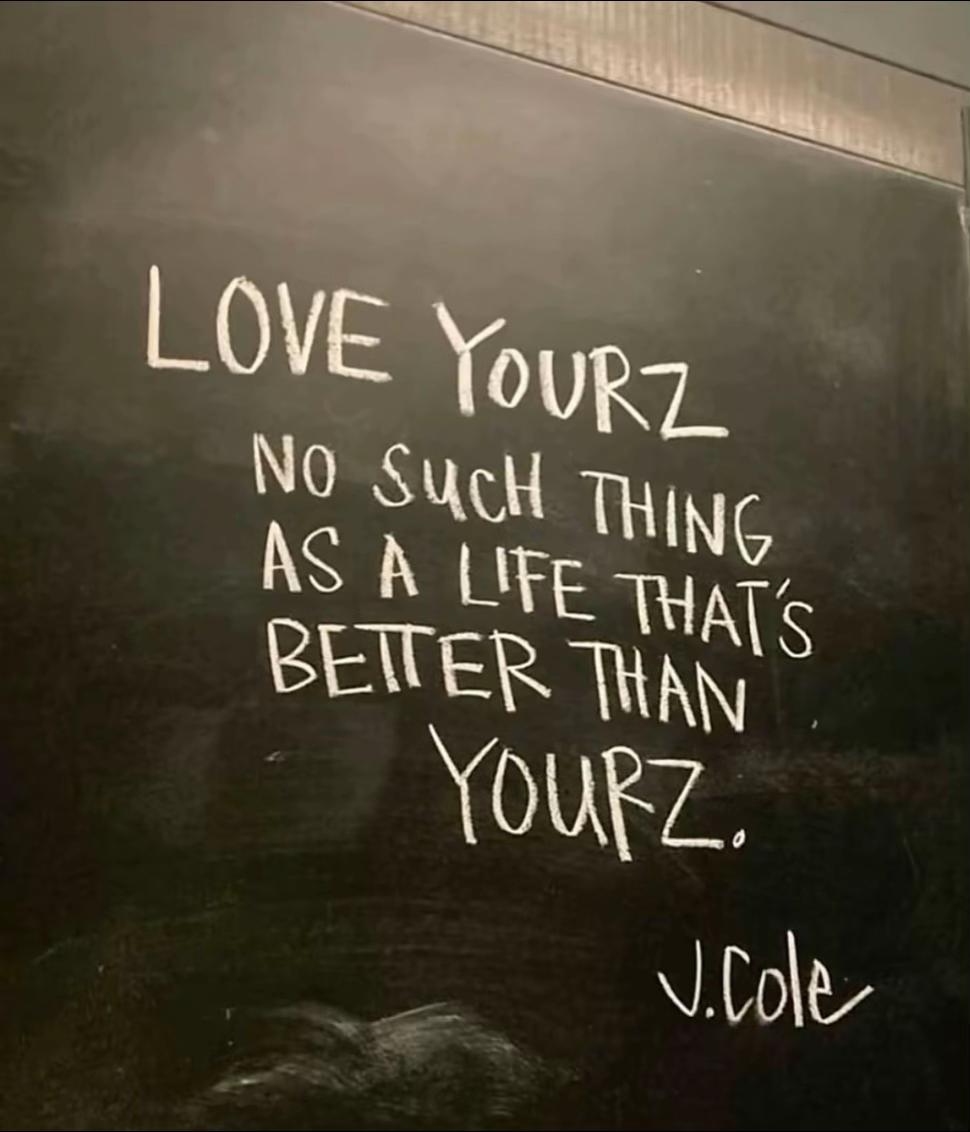 LOVE YOURZ
NO SUCH THING
AS A LIFE THAT'S
BETTER THAN
YOURZ.
J.Cole